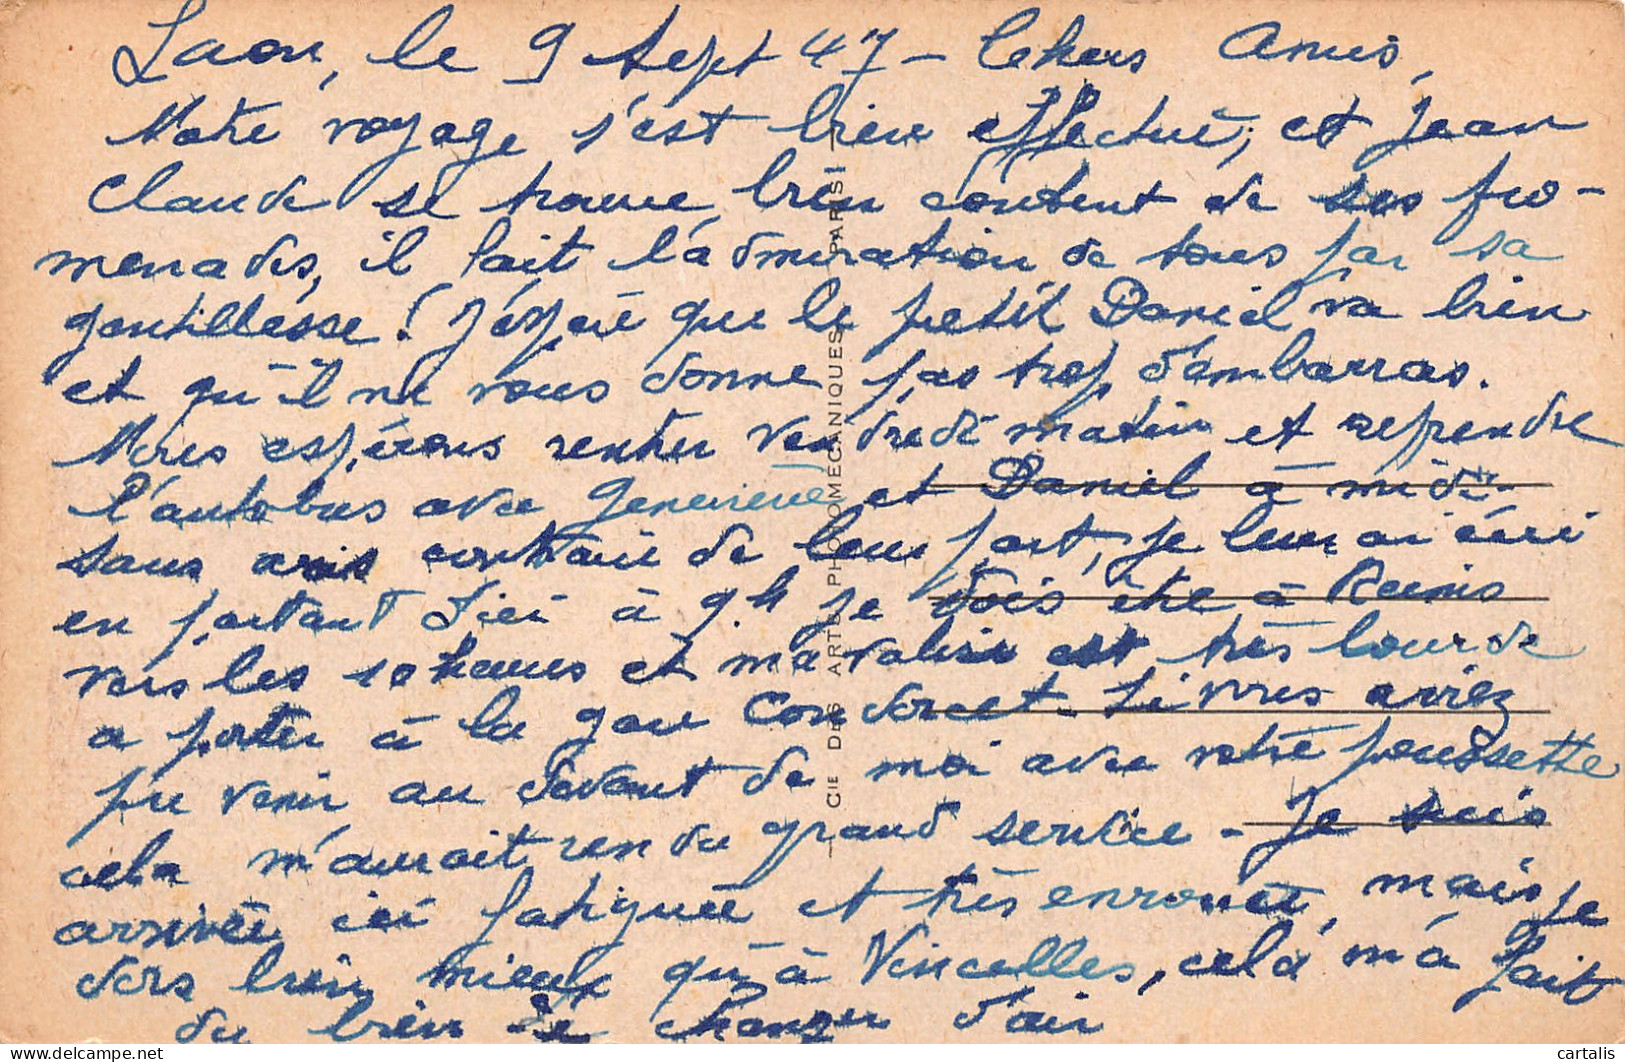 Laon, le 9 Sept 47 - Chers Amis,
Notre voyage s'est bien effectué, et Jean
Claude se trouve bien content de ses pro-
menades, il fait l'admiration de tous par sa
gentillesse ! J'éspère que le petit Daniel va bien
et qu'il ne vous donne pas trop d'embarras.
Nous espérons rentrer Vendredi matin et reprendre
l'autobus avec Geneviève et Daniel à midi
sans avis contraire de leur part, je leur ai écrit
en partant d'ici à 9h je dois être à Reims
vers les 10 heures et ma valise est très lourde
a porter à la gare Condorcet. Si vous aviez
pu venir au devant de moi avec votre poussette
cela m'aurait rendu grand service - Je suis
arrivée ici fatiguée et très enrouée, mais je
dors bien mieux qu'à Vincelles, celà m'a fait
du bien de changer d'air
CIE DES ARTS PHOTOMÉCANIQUES - PARIS -
cartalis